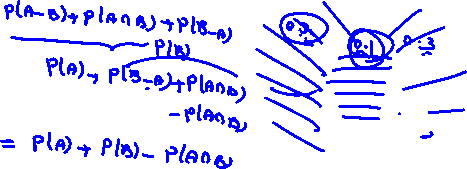 P(A-B)+P(A∩B)+P(B-A)
P(B)
P(A)+P(B-A)+P(A∩B)
-P(A∩B)
= P(A)+P(B)-P(A∩B)
0.1
0.3